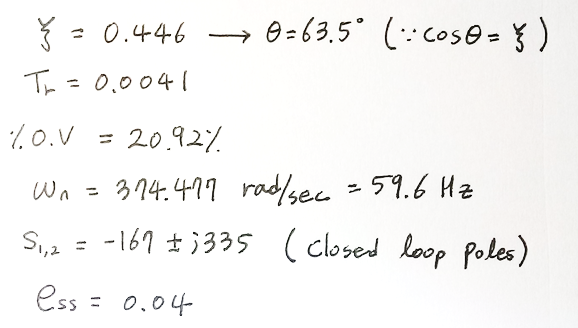 ξ = 0.446 → θ=63.5° (∵cosθ = ξ)
Tr = 0.0041
%O.V = 20.92%
ωn = 374.477 rad/sec = 59.6 Hz
S1,2 = -167 ± j335 (closed loop poles)
ess = 0.04